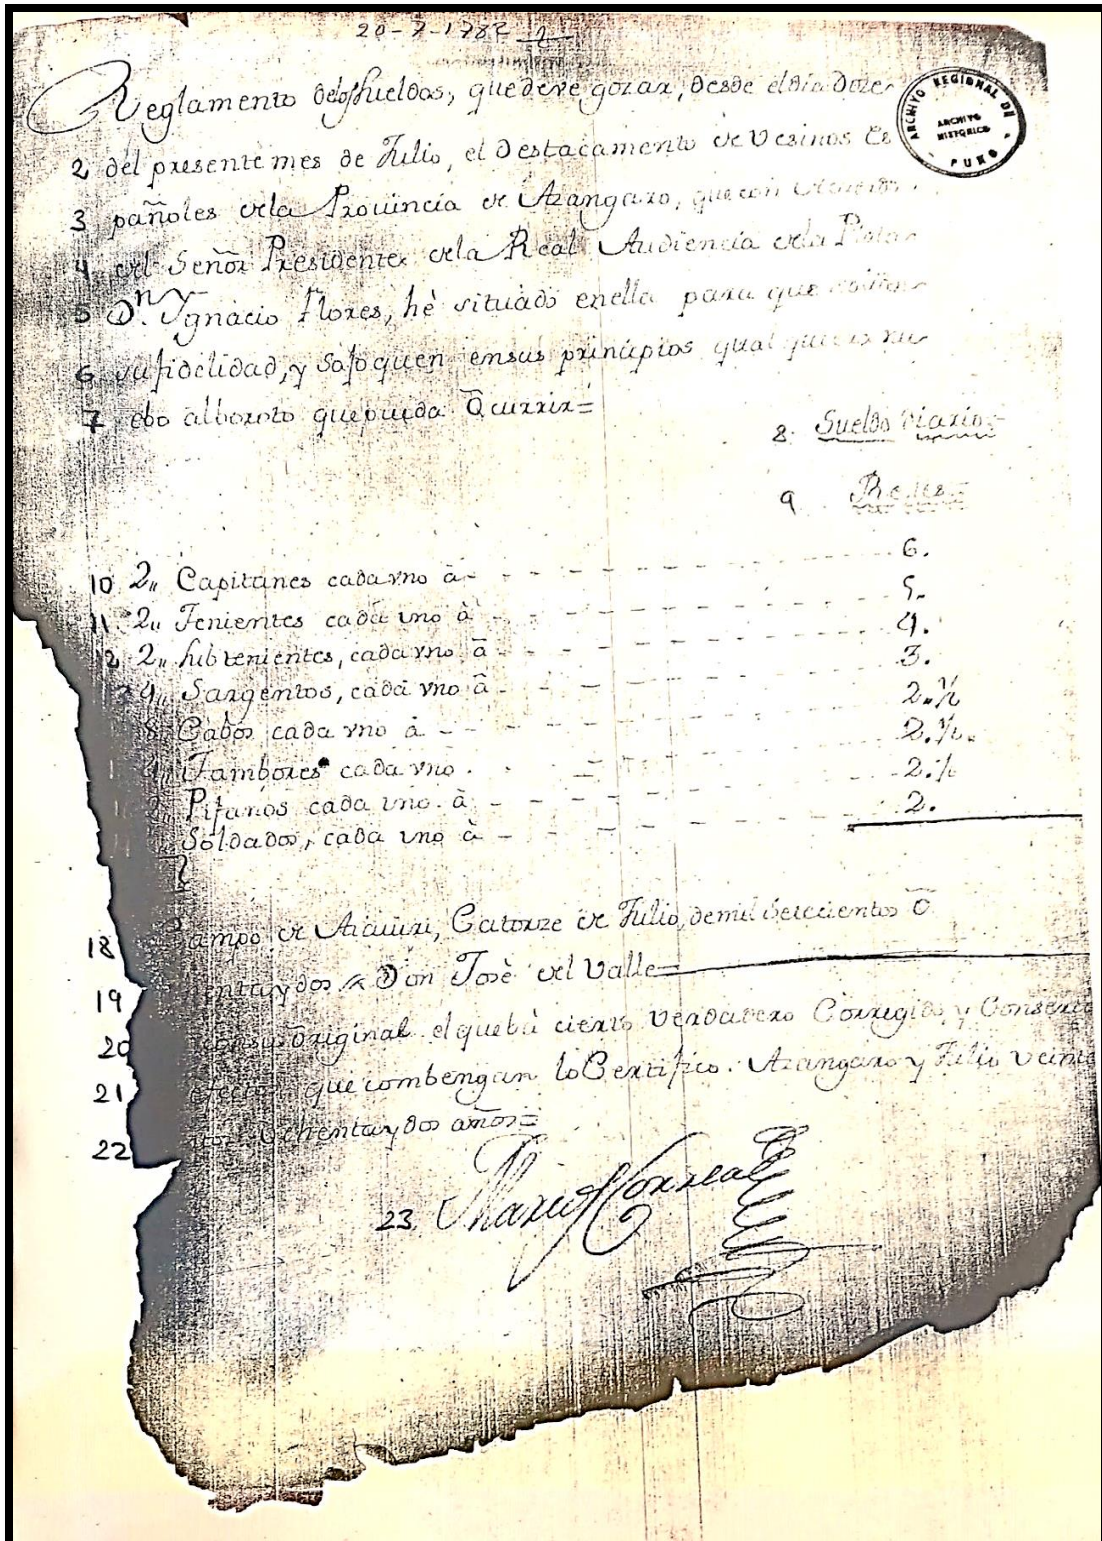 20-7-1782
Reglamento delos Sueldos, que deve gozar, desde el dia doze
2 del presente mes de Julio, el Destacamento de Vesinos Es
3 pañoles dela Provincia de Azangaro, que con
4 del Señor Presidente dela Real Audiencia dela Plata
5 Dn. Ygnacio Flores, hè situado enella para que
6 su fidelidad, y sofoquen ensus principios qualquier nu
7 ebo alboroto que pueda Ocurrir=
8. Sueldo diario=
9 Reales=
10 2,, Capitanes cada vno à - - - 6.
11 2,, Tenientes cada uno à - - - 5.
12 2,, Subtenientes, cada vno à - - - 4.
3 4,, Sargentos, cada vno à - - - 3.
8 Cabos cada vno à - - - 2,,½
Tambores cada vno - - - 2.½.
2,, Pifanos cada uno à - - - 2.½
Soldados, cada uno à - - - 2.
18 ampo de Catorze de Julio, de mil setecientos O
19 entaydos Don Josè del Valle=
20 consu Original el queba cierto Verdadero Corregido, y
21 que combengan lo Certifico. Azangaro y Julio veinte
22 Ochentaydos años=
23.
ARCHIVO REGIONAL DE
ARCHIVO
HISTORICO
PUNO